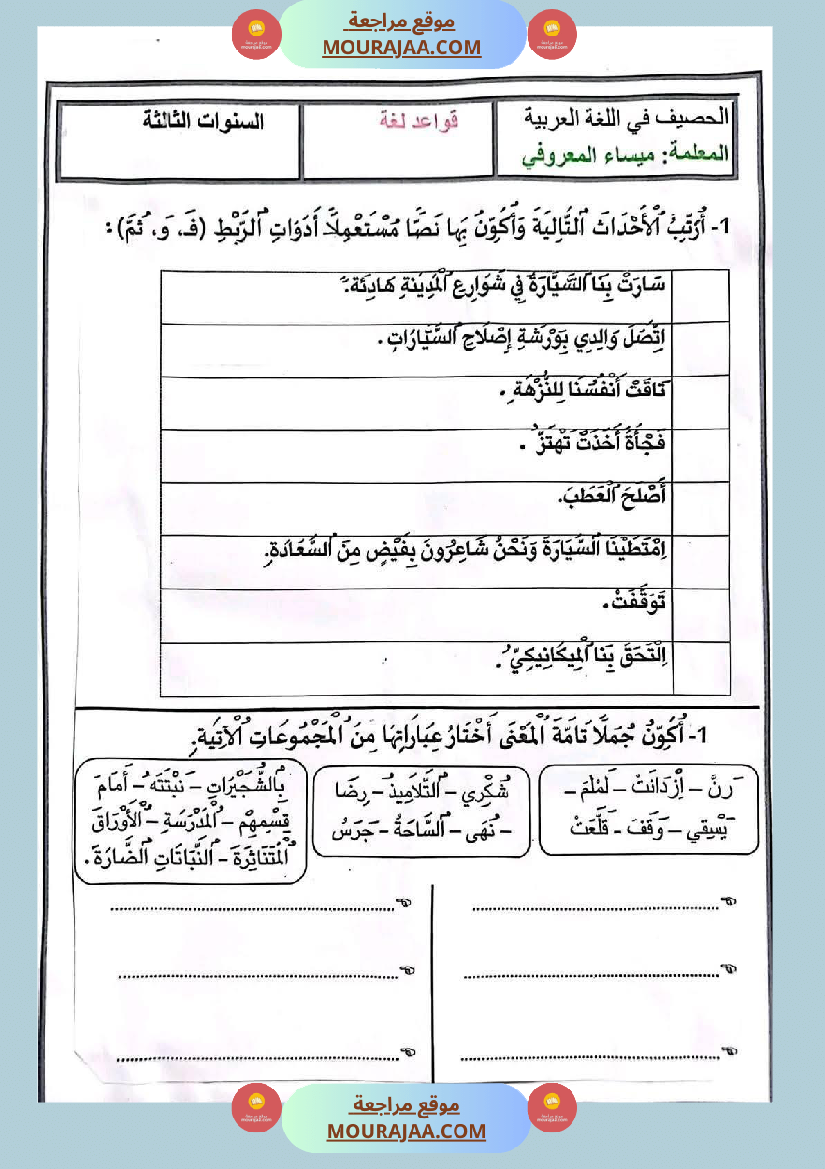 موقع مراجعة
MOURAJAA.COM
الحصيف في اللغة العربية
المعلمة: ميساء المعروفي
قواعد لغة
السنوات الثالثة
1- أُرَتِّبُ ٱلْأَحْدَاثَ ٱلتَّالِيَةَ وَأُكَوِّنُ بِهَا نَصًّا مُسْتَعْمِلًا أَدَوَاتِ ٱلرَّبْطِ (فَـ، وَ، ثُمَّ) :
سَارَتْ بِنَا ٱلسَّيَّارَةُ فِي شَوَارِعِ ٱلْمَدِينَةِ هَادِئَةً.
اِتَّصَلَ وَالِدِي بِوَرْشَةِ إِصْلَاحِ ٱلسَّيَّارَاتِ.
تَاقَتْ أَنْفُسُنَا لِلنُّزْهَةِ.
فَجْأَةً أَخَذَتْ تَهْتَزُّ.
أَصْلَحَ ٱلْعَطَبَ.
اِمْتَطَيْنَا ٱلسَّيَّارَةَ وَنَحْنُ شَاعِرُونَ بِفَيْضٍ مِنَ ٱلسَّعَادَةِ.
تَوَقَّفَتْ.
اِلْتَحَقَ بِنَا ٱلْمِيكَانِيكِيُّ.
1- أُكَوِّنُ جُمَلًا تَامَّةَ ٱلْمَعْنَى أَخْتَارُ عِبَارَاتِهَا مِنَ ٱلْمَجْمُوعَاتِ ٱلْآتِيَةِ.
رَنَّ – اِزْدَانَتْ – لَمْلَمَ –
يَسْقِي – وَقَفَ – قَلَّعَتْ
شُكْرِي – ٱلتَّلَامِيذُ – رِضَا
– نُهَى – ٱلسَّاحَةُ – جَرَسُ
بِٱلشُّجَيْرَاتِ – نَبْتَتَهُ – أَمَامَ
قِسْمِهِمْ – ٱلْمَدْرَسَةِ – ٱلْأَوْرَاقَ
ٱلْمُتَنَاثِرَةَ – ٱلنَّبَاتَاتِ ٱلضَّارَةَ.
موقع مراجعة
MOURAJAA.COM